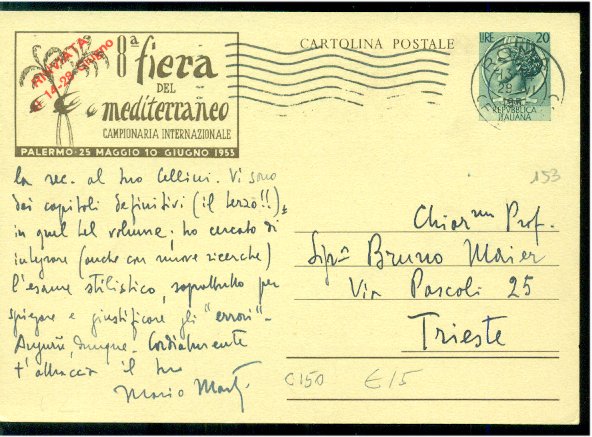 CARTOLINA POSTALE
LIRE 20
REPVBBLICA
ITALIANA
ROMA
8ª fiera
DEL
mediterraneo
CAMPIONARIA INTERNAZIONALE
PALERMO-25 MAGGIO 10 GIUGNO 1953
RINVIATA
14-29 Giugno
la rec. al tuo Cellini. Vi sono
dei capitoli definitivi (il terzo!!)
in quel tal volume; ho cercato di
integrare (anche con nuove ricerche)
l'esame stilistico, soprattutto per
spiegare e giustificare gli "errori".
Auguri, dunque. Cordialmente
t'abbraccia il tuo
Mario Marti
153
Chiar.mo Prof.
Sig. Bruno Maier
Via Pascoli 25
Trieste
C150 €15